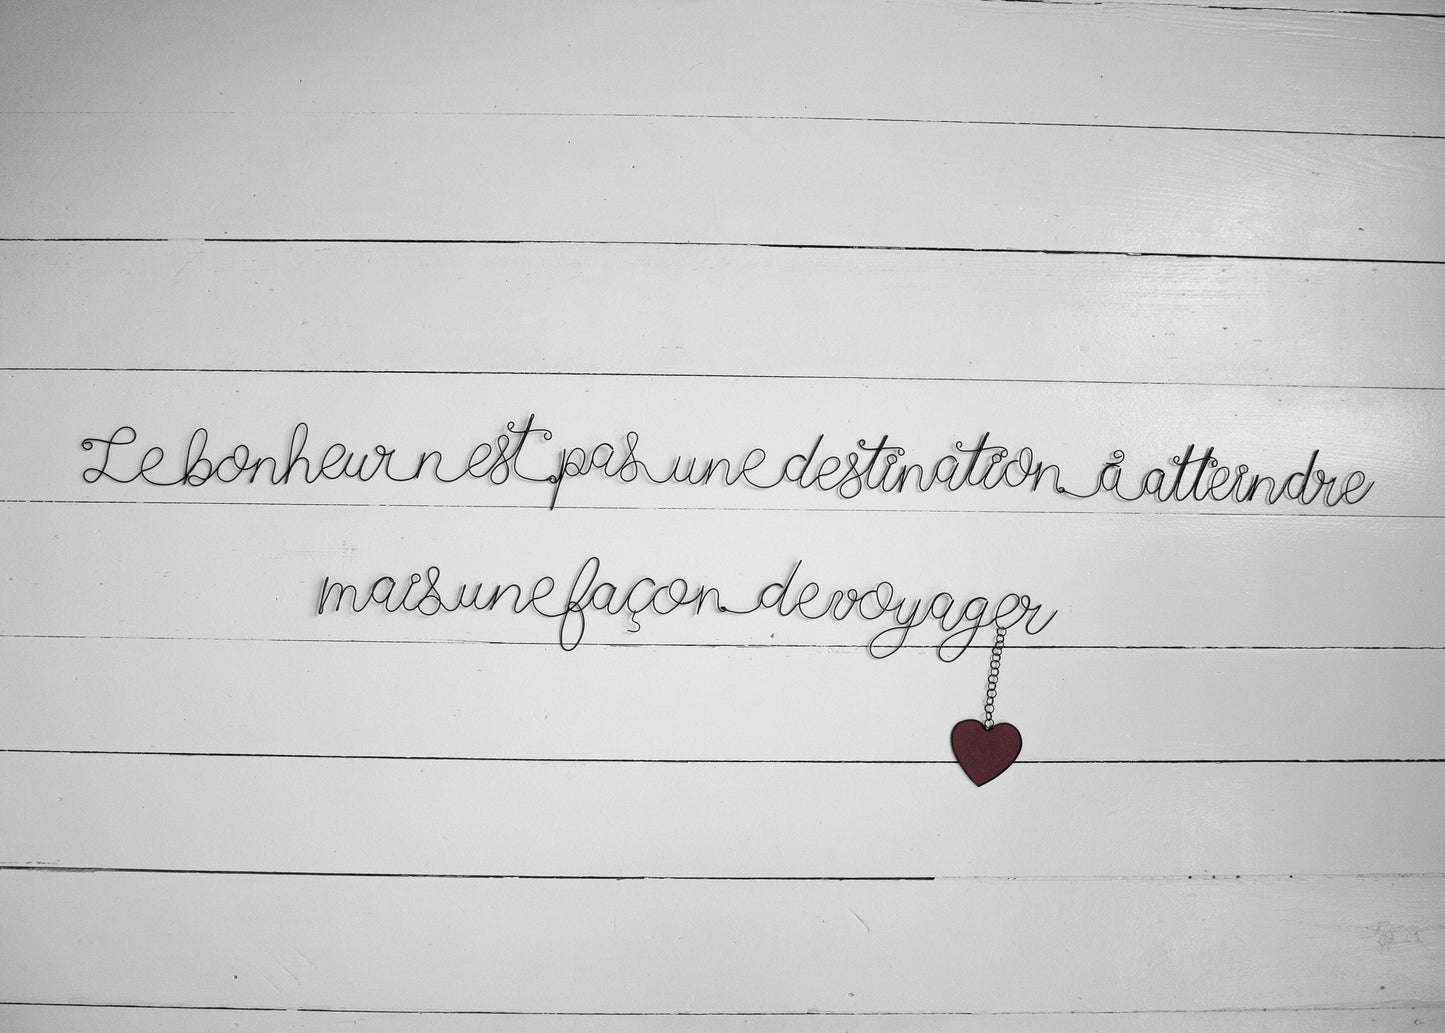 Le bonheur n est pas une destination à atteindre
mais une façon de voyager